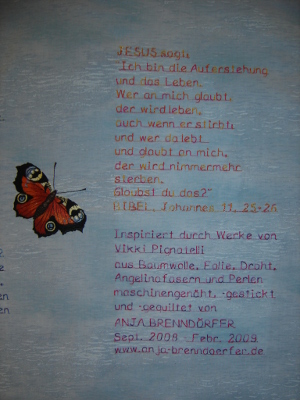 JESUS sagt:
"Ich bin die Auferstehung
und das Leben.
Wer an mich glaubt,
der wird leben,
auch wenn er stirbt;
und wer da lebt
und glaubt an mich,
der wird nimmermehr
sterben.
Glaubst du das?"
BIBEL, Johannes 11, 25-26
Inspiriert durch Werke von
Vikki Pignatelli
aus Baumwolle, Folie, Draht,
Angelinafasern und Perlen
maschinengenäht, -gestickt
und -gequiltet von
ANJA BRENNDÖRFER
Sept. 2008 - Febr. 2009
www.anja-brenndoerfer.de